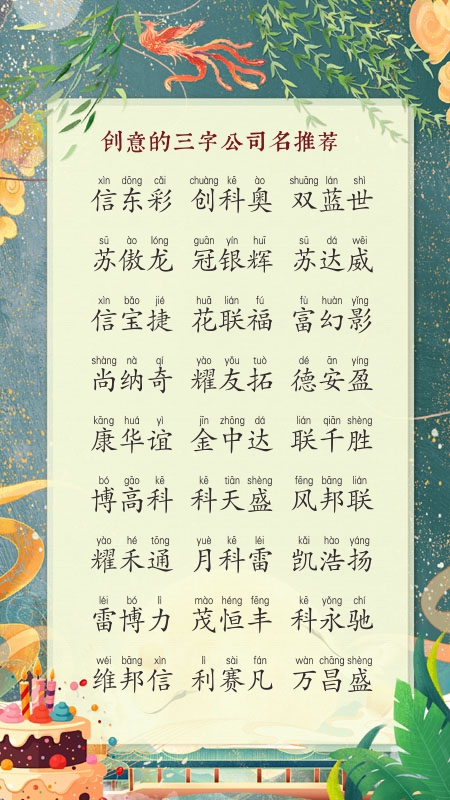 创意的三字公司名推荐
xìn dōng cǎi chuàng kē ào shuāng lán shì
信东彩 创科奥 双蓝世
sū ào lóng guān yín huī sū dá wēi
苏傲龙 冠银辉 苏达威
xìn bǎo jié huā lián fú fù huàn yǐng
信宝捷 花联福 富幻影
shàng nà qí yào yǒu tuò dé ān yíng
尚纳奇 耀友拓 德安盈
kāng huá yì jīn zhōng dá lián qiān shèng
康华谊 金中达 联千胜
bó gāo kē kē tiān shèng fēng bāng lián
博高科 科天盛 风邦联
yào hé tōng yuè kē léi kǎi hào yáng
耀禾通 月科雷 凯浩扬
léi bó lì mào héng fēng kē yǒng chí
雷博力 茂恒丰 科永驰
wéi bāng xìn lì sài fán wàn chāng shèng
维邦信 利赛凡 万昌盛